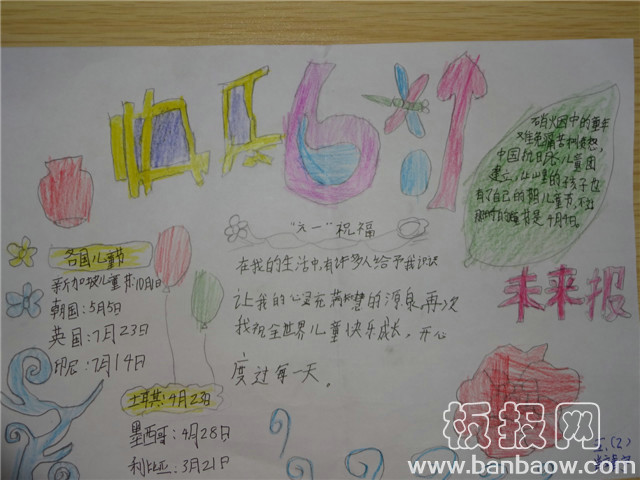 快乐6.1
硝火因中的童年
难免痛苦和
中国抗日 儿童团
建立,山里的孩子也
有了自己的 儿童节,不过
那时的儿童节是4月4日。
未来报
各国儿童节
新加坡儿童节:10月1日
韩国:5月5日
英国:7月23日
印尼:7月14日
土耳其:4月23日
墨西哥:4月28日
利比亚:3月21日
“六一”祝福
在我的生活中,有许多人给予我识识
让我的心灵充满 想的源泉,再次
我祝全世界儿童快乐成长,开心
度过每一天。
五.(2)
板报网
www.banbaow.com